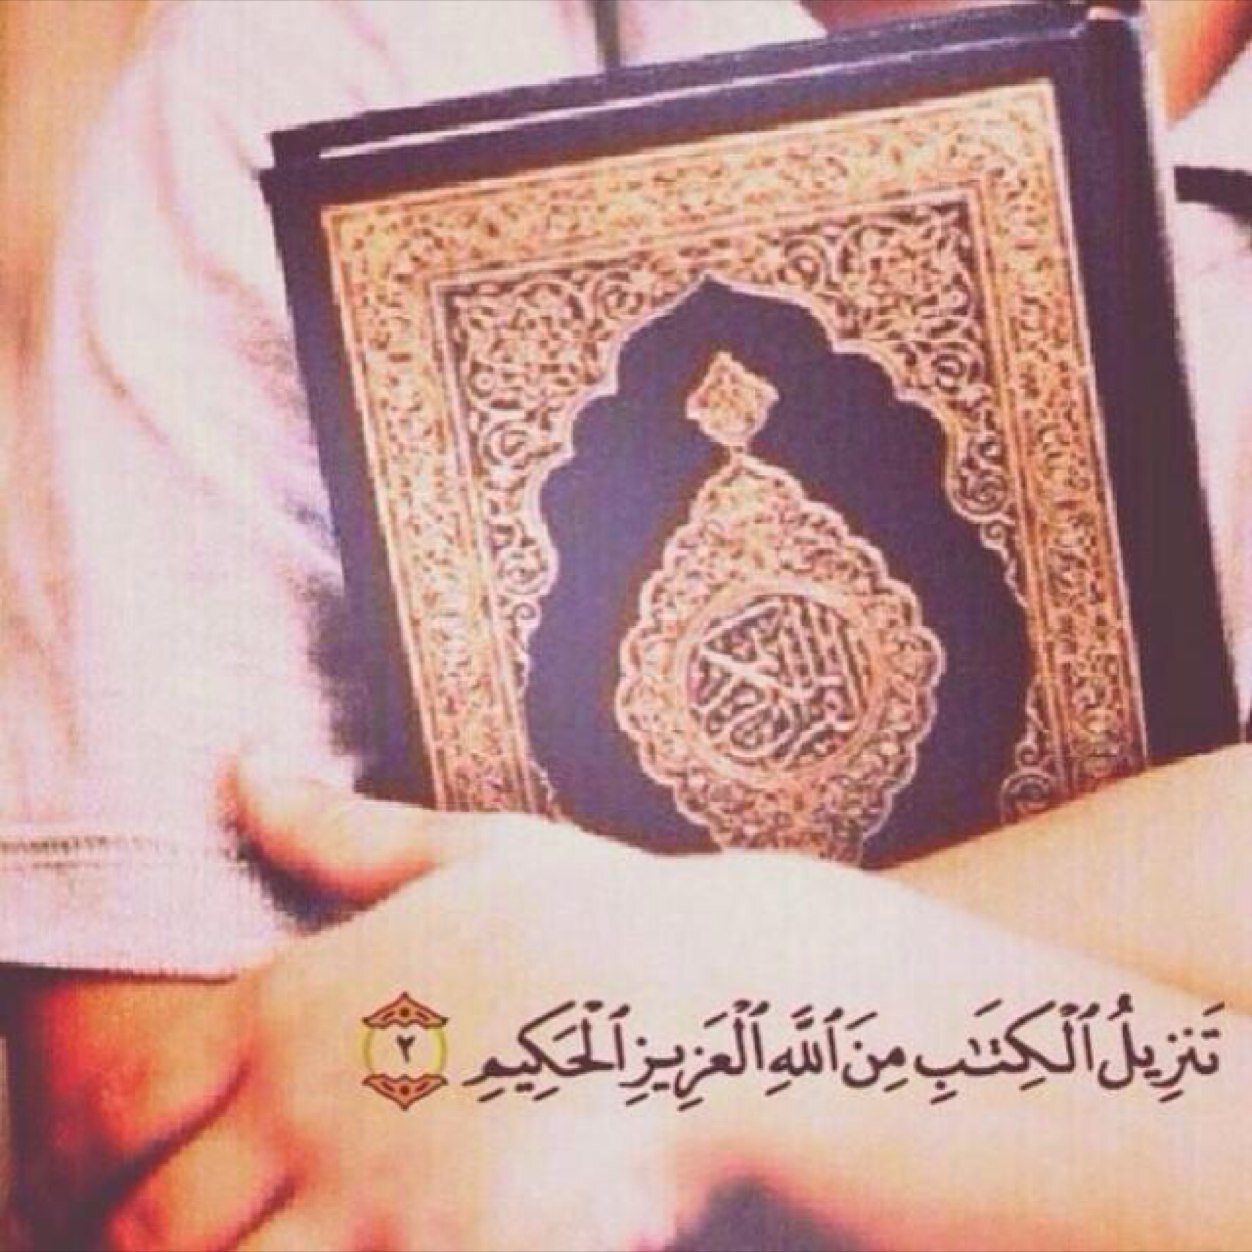 القرآن الكريم
تَنزِيلُ ٱلْكِتَٰبِ مِنَ ٱللَّهِ ٱلْعَزِيزِ ٱلْحَكِيمِ ٢